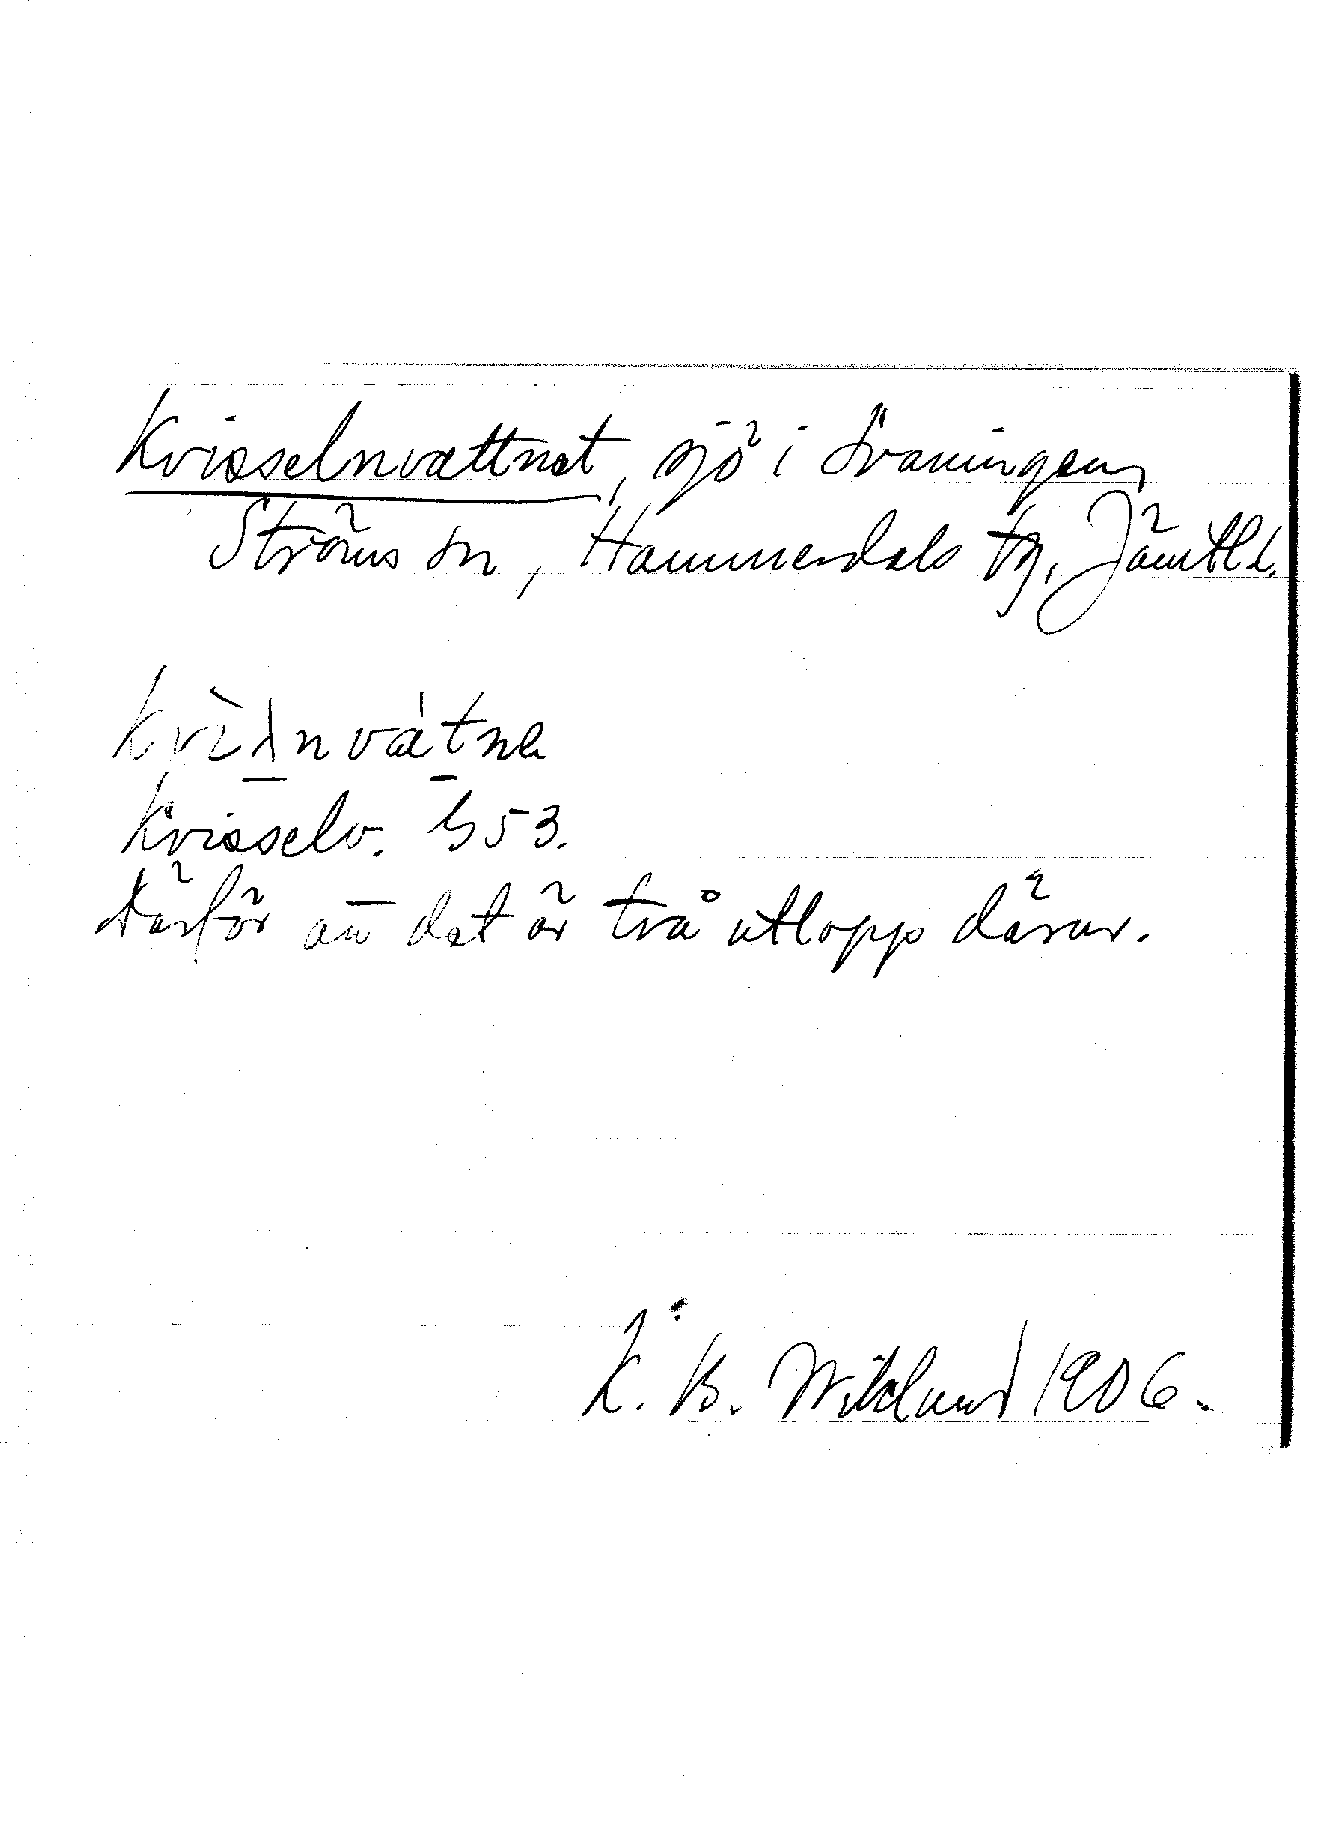 Kvisselnvattnet, sjö i Svaningen,
Ströms sn, Hammerdals tg, Jämtl l.
Kvisselv. 53.
Därför att det är två utlopp därur.
K. B. Wiklund 1906.